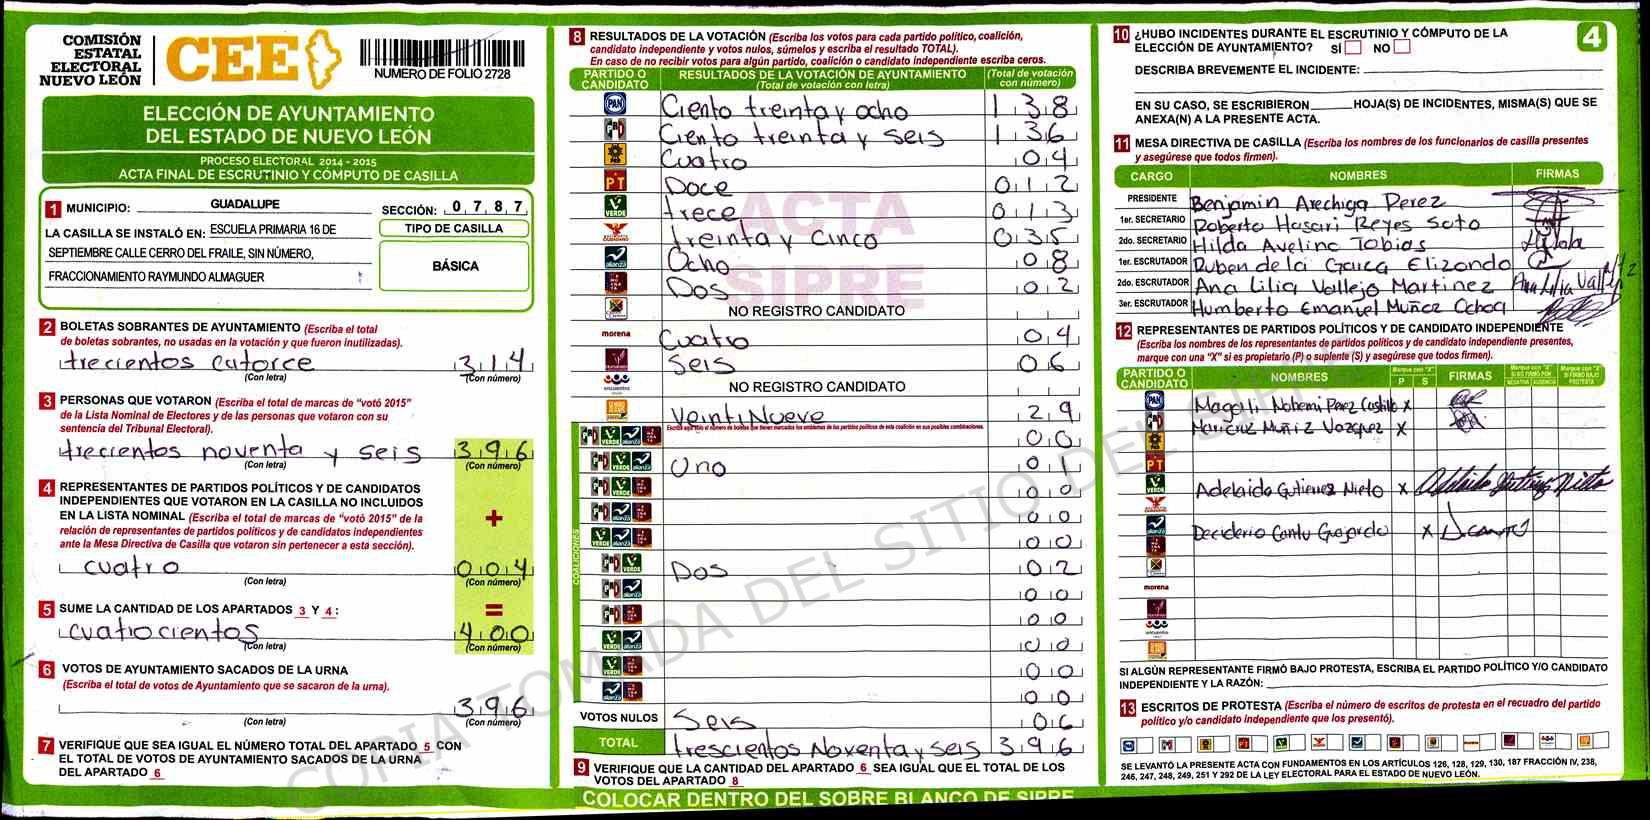 COMISIÓN
ESTATAL
ELECTORAL
NUEVO LEÓN
CEE
NUMERO DE FOLIO 2728
ELECCIÓN DE AYUNTAMIENTO
DEL ESTADO DE NUEVO LEÓN
PROCESO ELECTORAL 2014 - 2015
ACTA FINAL DE ESCRUTINIO Y CÓMPUTO DE CASILLA
1 MUNICIPIO: GUADALUPE SECCIÓN: 0 7 8 7
LA CASILLA SE INSTALÓ EN: ESCUELA PRIMARIA 16 DE
SEPTIEMBRE CALLE CERRO DEL FRAILE, SIN NÚMERO,
FRACCIONAMIENTO RAYMUNDO ALMAGUER
TIPO DE CASILLA
BÁSICA
2 BOLETAS SOBRANTES DE AYUNTAMIENTO (Escriba el total
de boletas sobrantes, no usadas en la votación y que fueron inutilizadas).
trecientos catorce 3 1 4
(Con letra) (Con número)
3 PERSONAS QUE VOTARON (Escriba el total de marcas de "votó 2015"
de la Lista Nominal de Electores y de las personas que votaron con su
sentencia del Tribunal Electoral).
trecientos noventa y seis 3 9 6
(Con letra) (Con número)
4 REPRESENTANTES DE PARTIDOS POLÍTICOS Y DE CANDIDATOS
INDEPENDIENTES QUE VOTARON EN LA CASILLA NO INCLUIDOS
EN LA LISTA NOMINAL (Escriba el total de marcas de "votó 2015" de la
relación de representantes de partidos políticos y de candidatos independientes
ante la Mesa Directiva de Casilla que votaron sin pertenecer a esta sección).
+
cuatro 0 0 4
(Con letra) (Con número)
5 SUME LA CANTIDAD DE LOS APARTADOS 3 Y 4 : =
cuatrocientos 4 0 0
(Con letra) (Con número)
6 VOTOS DE AYUNTAMIENTO SACADOS DE LA URNA
(Escriba el total de votos de Ayuntamiento que se sacaron de la urna).
3 9 6
(Con letra) (Con número)
7 VERIFIQUE QUE SEA IGUAL EL NÚMERO TOTAL DEL APARTADO 5 CON
EL TOTAL DE VOTOS DE AYUNTAMIENTO SACADOS DE LA URNA
DEL APARTADO 6
8 RESULTADOS DE LA VOTACIÓN (Escriba los votos para cada partido político, coalición,
candidato independiente y votos nulos, súmelos y escriba el resultado TOTAL).
En caso de no recibir votos para algún partido, coalición o candidato independiente escriba ceros.
PARTIDO O CANDIDATO
RESULTADOS DE LA VOTACIÓN DE AYUNTAMIENTO
(Total de votación con letra)
(Total de votación con número)
PAN Ciento treinta y ocho 1 3 8
PRI Ciento treinta y seis 1 3 6
PRD Cuatro 0 4
PT Doce 0 1 2
VERDE trece 0 1 3
treinta y cinco 0 3 5
alianza Ocho 0 8
Dos 0 2
NO REGISTRO CANDIDATO
morena Cuatro 0 4
Seis 0 6
encuentro NO REGISTRO CANDIDATO
Veinti Nueve 2 9
Escriba aquí sólo el número de boletas que tienen marcados los emblemas de los partidos políticos de esta coalición en sus posibles combinaciones.
COALICIONES
0 0
Uno 0 1
0 0
0 0
0 0
Dos 0 2
0 0
0 0
0 0
0 0
0 0
VOTOS NULOS Seis 0 6
TOTAL trescientos Noventa y seis 3 9 6
9 VERIFIQUE QUE LA CANTIDAD DEL APARTADO 6 SEA IGUAL QUE EL TOTAL DE LOS
VOTOS DEL APARTADO 8
COLOCAR DENTRO DEL SOBRE BLANCO DE SIPRE
ACTA
SIPRE
COPIA TOMADA DEL SITIO DEL SIPRE
10 ¿HUBO INCIDENTES DURANTE EL ESCRUTINIO Y CÓMPUTO DE LA
ELECCIÓN DE AYUNTAMIENTO? SÍ NO
4
DESCRIBA BREVEMENTE EL INCIDENTE:
EN SU CASO, SE ESCRIBIERON HOJA(S) DE INCIDENTES, MISMA(S) QUE SE
ANEXA(N) A LA PRESENTE ACTA.
11 MESA DIRECTIVA DE CASILLA (Escriba los nombres de los funcionarios de casilla presentes
y asegúrese que todos firmen).
CARGO NOMBRES FIRMAS
PRESIDENTE Benjamin Arechiga Perez
1er. SECRETARIO Roberto Hasari Reyes Soto
2do. SECRETARIO Hilda Avelino Tobias Hilda
1er. ESCRUTADOR Ruben de la Garza Elizondo
2do. ESCRUTADOR Ana Lilia Vallejo Martinez Ana Lilia Vallejo Mtz
3er. ESCRUTADOR Humberto Emanuel Muñoz Ochoa
12 REPRESENTANTES DE PARTIDOS POLÍTICOS Y DE CANDIDATO INDEPENDIENTE
(Escriba los nombres de los representantes de partidos políticos y de candidato independiente presentes,
marque con una "X" si es propietario (P) o suplente (S) y asegúrese que todos firmen).
PARTIDO O CANDIDATO
NOMBRES
Marque con "X"
P S
FIRMAS
Marque con "X" SI NO FIRMÓ POR
NEGATIVA AUSENCIA
Marque con "X" SI FIRMÓ BAJO PROTESTA
PAN Magali Nohemi Perez Castillo X
Maricruz Muñiz Vazquez X
PRD
PT
VERDE Adelaida Gutierrez Nieto X Adelaida Gutierrez Nieto
alianza Deciderio Cantu Gajardo X
morena
encuentro
SI ALGÚN REPRESENTANTE FIRMÓ BAJO PROTESTA, ESCRIBA EL PARTIDO POLÍTICO Y/O CANDIDATO
INDEPENDIENTE Y LA RAZÓN:
13 ESCRITOS DE PROTESTA (Escriba el número de escritos de protesta en el recuadro del partido
político y/o candidato independiente que los presentó).
SE LEVANTÓ LA PRESENTE ACTA CON FUNDAMENTOS EN LOS ARTÍCULOS 126, 128, 129, 130, 187 FRACCIÓN IV, 238,
246, 247, 248, 249, 251 Y 292 DE LA LEY ELECTORAL PARA EL ESTADO DE NUEVO LEÓN.